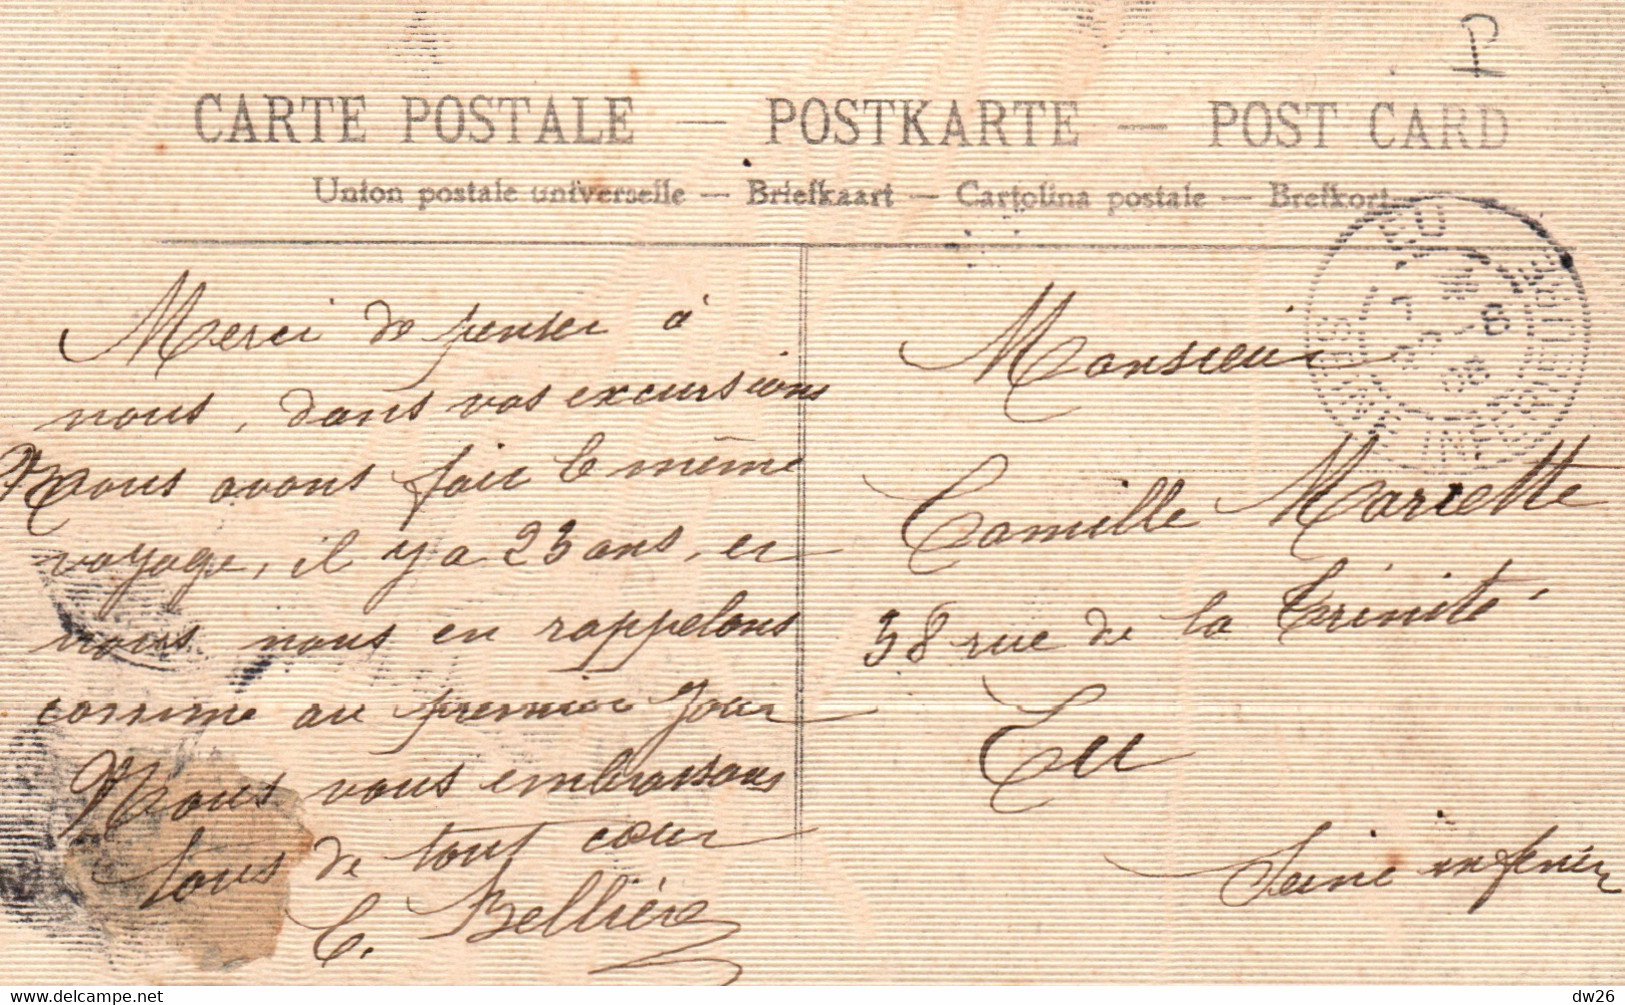 P
CARTE POSTALE — POSTKARTE — POST CARD
Union postale universelle — Briefkaart — Cartolina postale — Brefkort
EU
SEINE INFERIEURE
08
Merci de penser à
nous, dans vos excursions
Nous avons fait le même
voyage, il y a 23 ans, et
nous nous en rappelons
comme au premier jour
Nous vous embrassons
tous de tout cœur
C. Bellière
Monsieur
Camille Mariette
38 rue de la Trinité
Eu
Seine inférieur
dw26